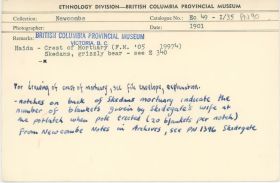 ETHNOLOGY DIVISION—BRITISH COLUMBIA PROVINCIAL MUSEUM
Collection: Newcombe Catalogue No.:
Locality: Date: 1901
Remarks: BRITISH COLUMBIA PROVINCIAL MUSEUM
VICTORIA, B. C.
Haida - Crest of Mortuary (F.M. '05 19974)
Skedans, grizzly bear - see E 340
For drawing of crest of mortuary, see file envelope, explanation.
- notches on back of Skedans mortuary indicate the
number of blankets given by Skedegate's wife at
the potlatch when pole erected (20 blankets per notch)
From Newcombe Notes in Archives, see PN 1396 Skidegate